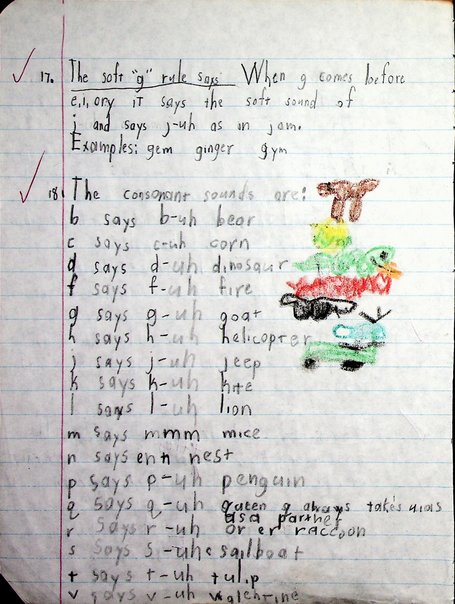 17. The soft "g" rule says When g comes before
e, i, or y it says the soft sound of
j and says j-uh as in jam.
Examples: gem ginger gym
18. The consonant sounds are:
b says b-uh bear
c says c-uh corn
d says d-uh dinosaur
f says f-uh fire
g says g-uh goat
h says h-uh helicopter
j says j-uh jeep
k says k-uh kite
l says l-uh lion
m says mmm mice
n says enn nest
p says p-uh penguin
q says q-uh q always takes
as a partner
r says r-uh or er raccoon
s says s-uh sailboat
t says t-uh tulip
v says v-uh valentine